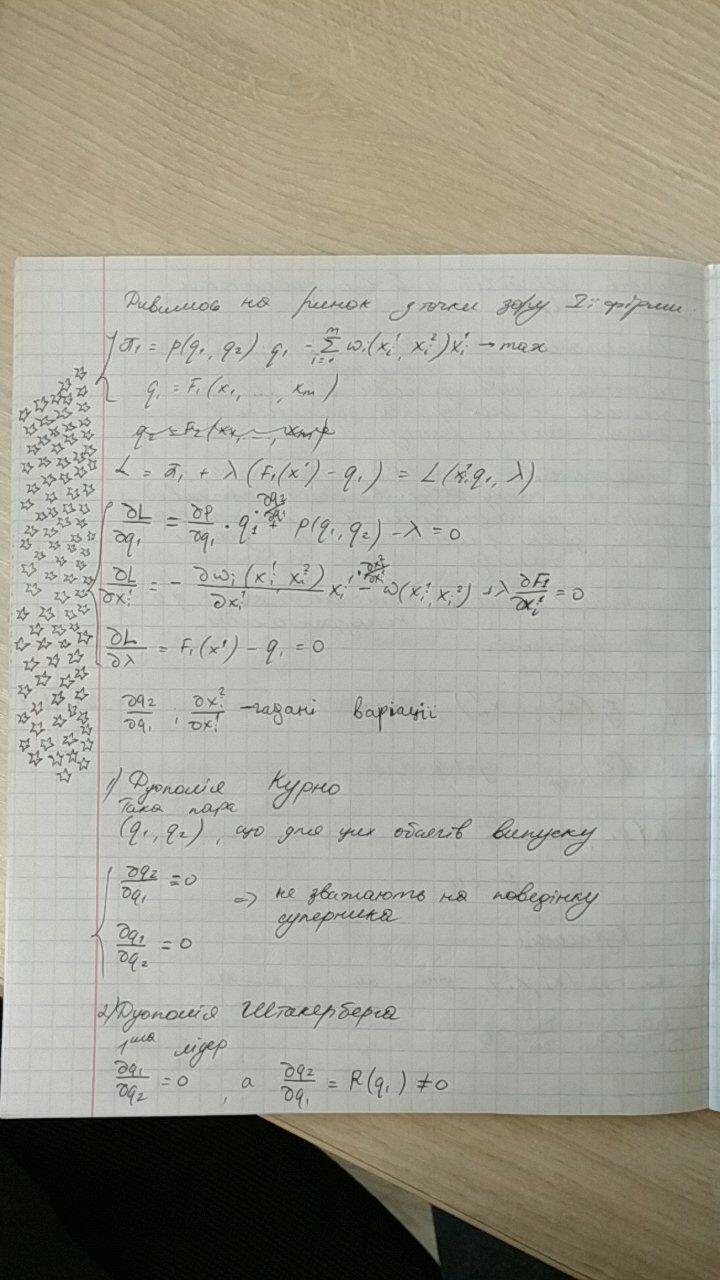 Дивимось на ринок з точки зору I-ї фірми
π₁ = p(q₁, q₂) q₁ - ∑ᵢ₌₁ᵐ ωᵢ(xᵢ¹, xᵢ²)xᵢ¹ → max
q₁ = F₁(x₁, ..., xₘ)
q₂ = F₂(x₁, ..., xₘ)
L = π₁ + λ(F₁(x¹) - q₁) = L(x¹, q₁, λ)
∂L/∂q₁ = ∂p/∂q₁ · q₁ · ∂q₂/∂q₁ + p(q₁, q₂) - λ = 0
∂L/∂xᵢ¹ = - ∂ωᵢ(xᵢ¹, xᵢ²)/∂xᵢ¹ xᵢ¹ · ∂xᵢ²/∂xᵢ¹ - ω(xᵢ¹, xᵢ²) + λ ∂F₁/∂xᵢ¹ = 0
∂L/∂λ = F₁(x¹) - q₁ = 0
∂q₂/∂q₁ , ∂xᵢ²/∂xᵢ¹ - гадані варіації
1) Дуополія Курно
Така пара
(q₁, q₂), що для цих обсягів випуску
∂q₂/∂q₁ = 0
=> не зважають на поведінку
суперника
∂q₁/∂q₂ = 0
2) Дуополія Штакерберга
1ша лідер
∂q₁/∂q₂ = 0, а ∂q₂/∂q₁ = R(q₁) ≠ 0